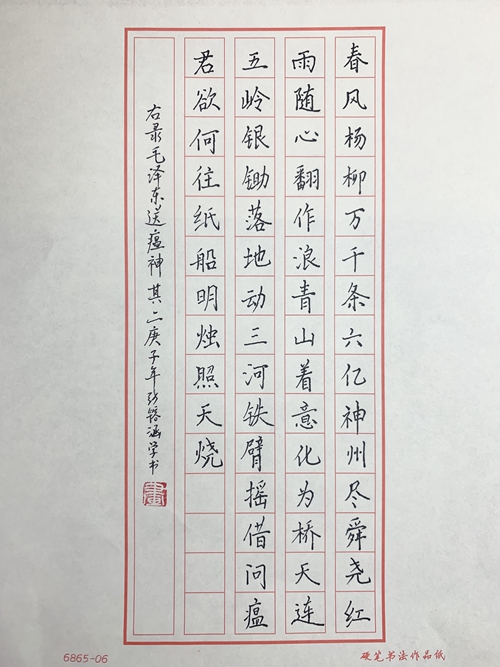 春风杨柳万千条六亿神州尽舜尧红
雨随心翻作浪青山着意化为桥天连
五岭银锄落地动三河铁臂摇借问瘟
君欲何往纸船明烛照天烧
右录毛泽东送瘟神其二庚子年张镕涵学书
6865-06
硬笔书法作品纸